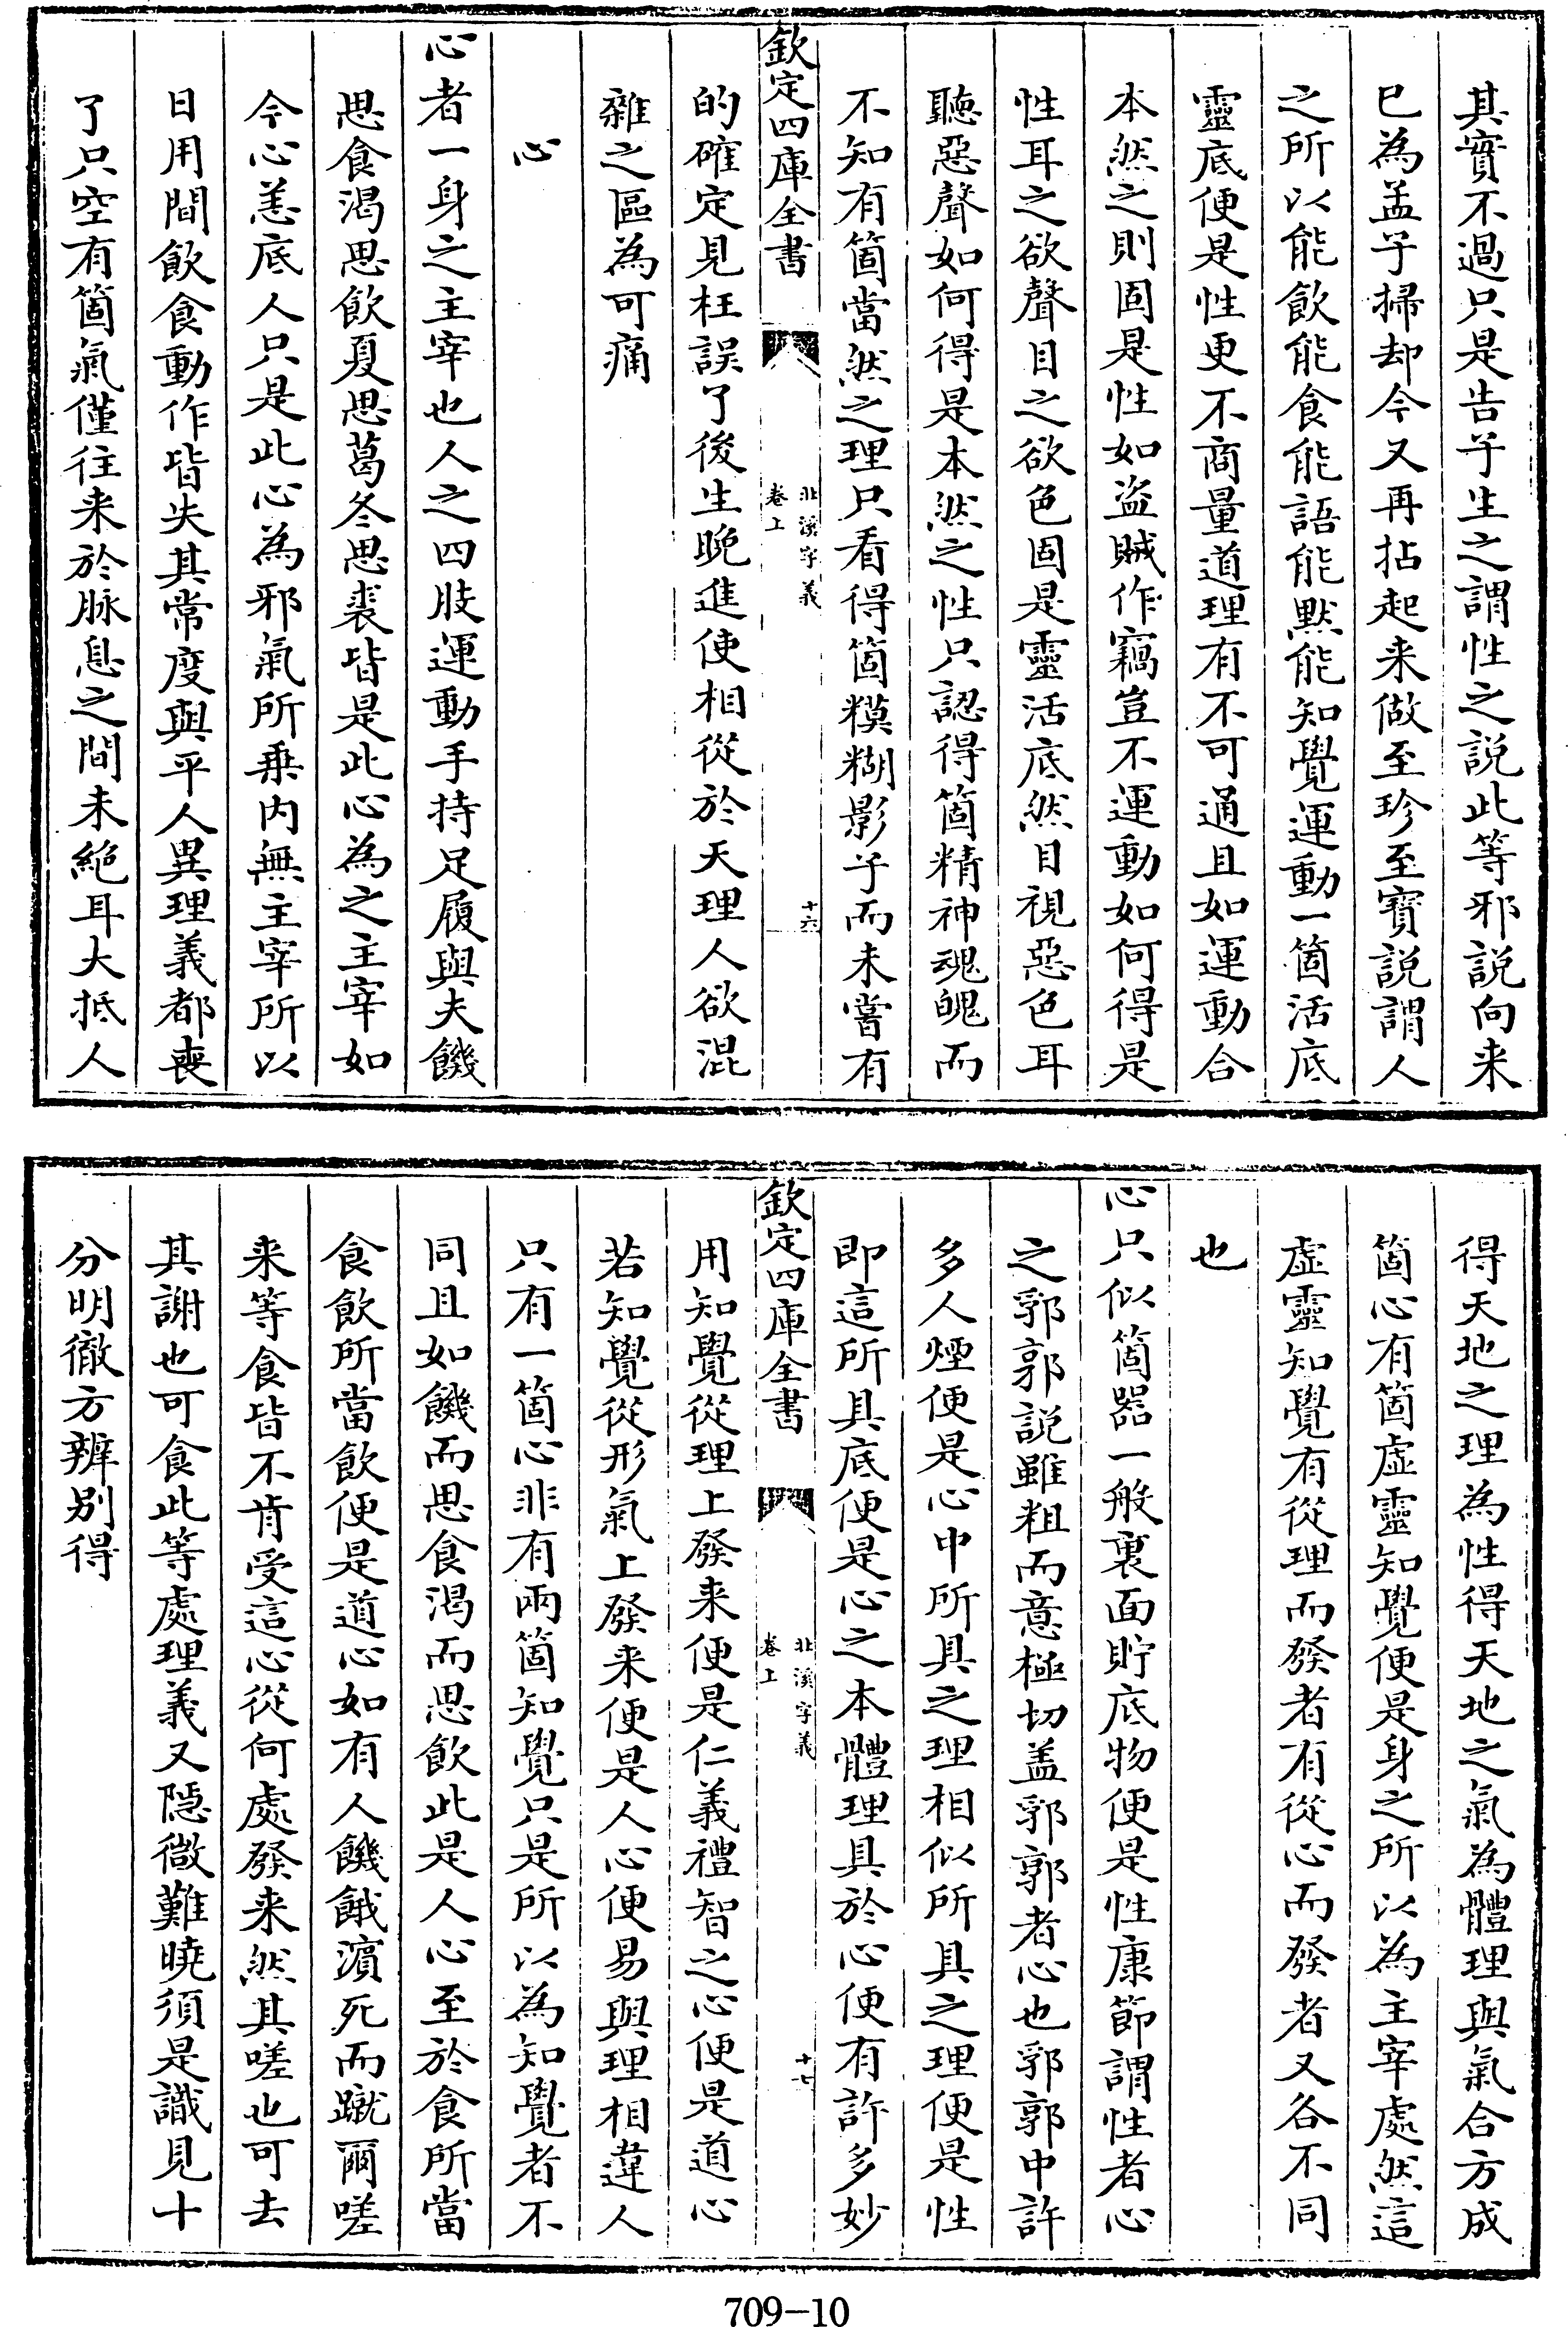 其實不過只是告子生之謂性之說此等邪說向来
已為孟子掃却今又再拈起来做至珍至寳說謂人
之所以能飲能食能語能黙能知覺運動一箇活底
靈底便是性更不商量道理有不可通且如運動合
本然之則固是性如盜賊作竊豈不運動如何得是
性耳之欲聲目之欲色固是靈活底然目視惡色耳
聽惡聲如何得是本然之性只認得箇精神魂魄而
不知有箇當然之理只看得箇糢糊影子而未嘗有
欽定四庫全書
北溪字義
卷上
十六
的確定見枉誤了後生晚進使相從於天理人欲混
雜之區為可痛
心
心者一身之主宰也人之四肢運動手持足履與夫饑
思食渇思飲夏思葛冬思裘皆是此心為之主宰如
今心恙底人只是此心為邪氣所乗内無主宰所以
日用間飲食動作皆失其常度與平人異理義都喪
了只空有箇氣僅往来於脉息之間未絶耳大抵人
得天地之理為性得天地之氣為體理與氣合方成
箇心有箇虚靈知覺便是身之所以為主宰處然這
虚靈知覺有從理而發者有從心而發者又各不同
也
心只似箇器一般裏面貯底物便是性康節謂性者心
之郛郭說雖粗而意極切盖郛郭者心也郛郭中許
多人煙便是心中所具之理相似所具之理便是性
即這所具底便是心之本體理具於心便有許多妙
欽定四庫全書
北溪字義
卷上
十七
用知覺從理上發来便是仁義禮智之心便是道心
若知覺從形氣上發来便是人心便易與理相違人
只有一箇心非有兩箇知覺只是所以為知覺者不
同且如饑而思食渇而思飲此是人心至於食所當
食飲所當飲便是道心如有人饑餓濵死而蹴爾嗟
来等食皆不肯受這心從何處發来然其嗟也可去
其謝也可食此等處理義又隠微難曉須是識見十
分明徹方辨别得
709-10